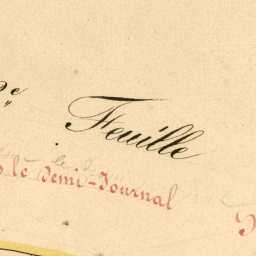 Feuille
le Demi-Journal